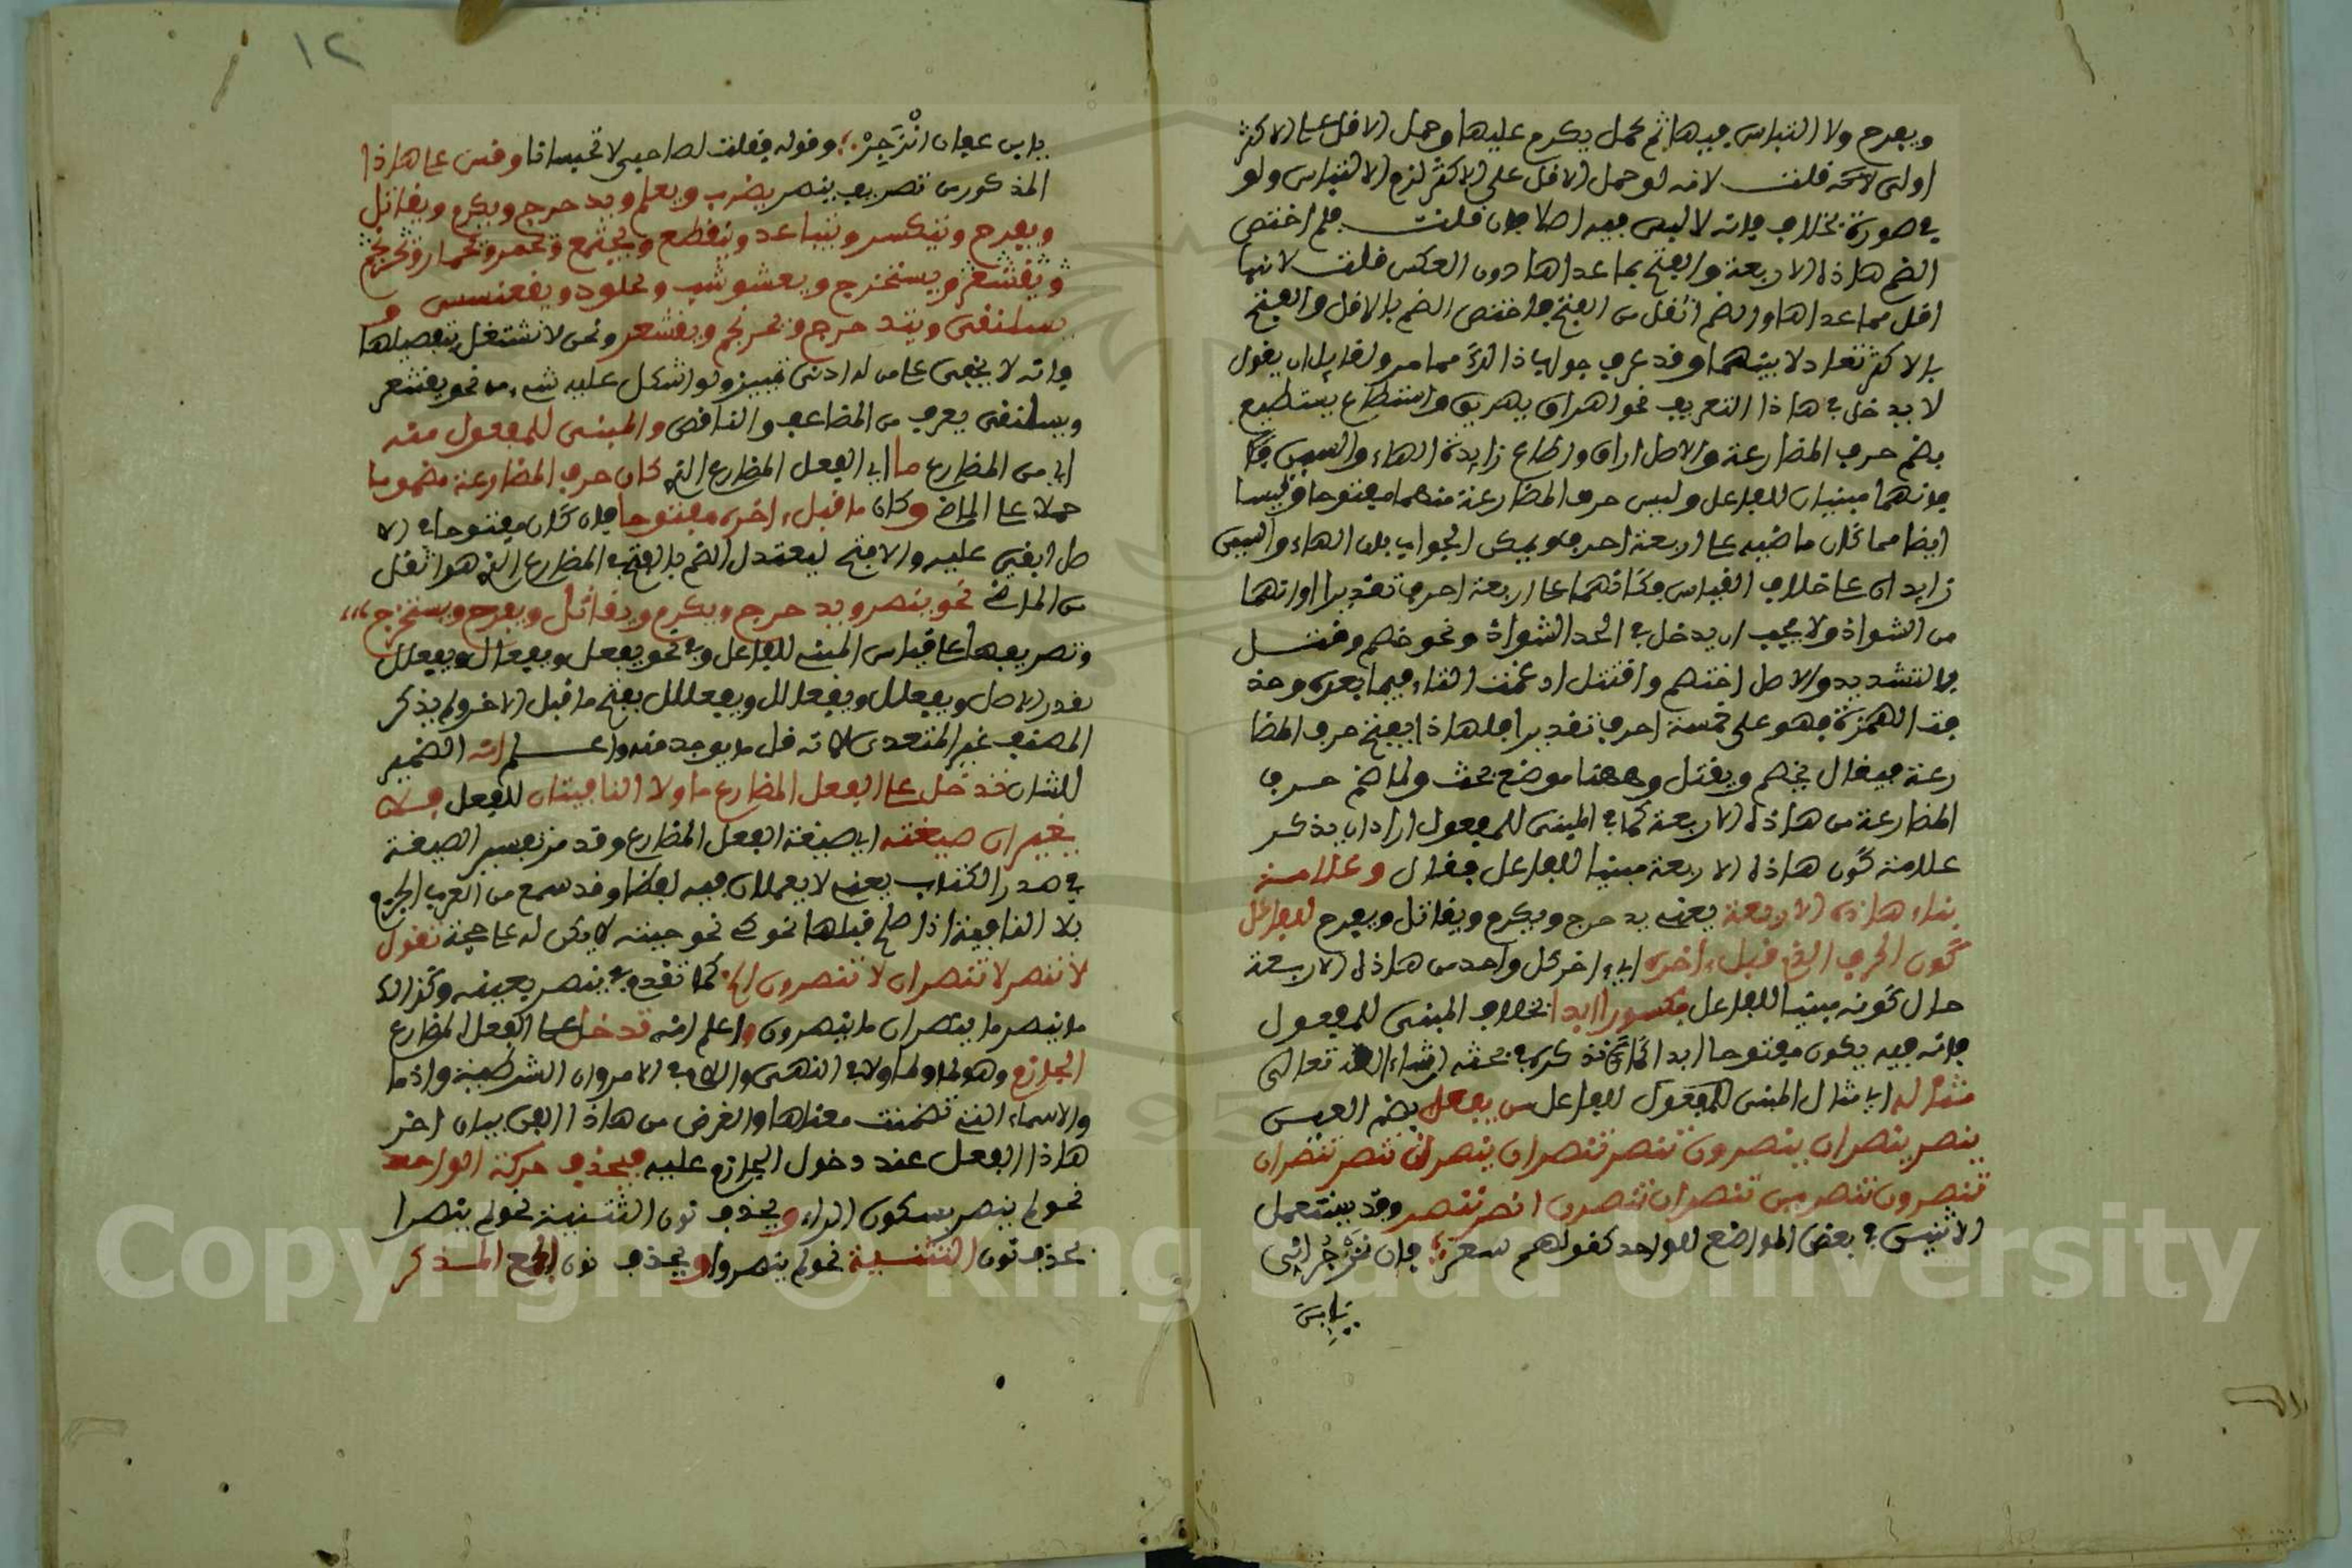 ويفرح ولا التباس فيها ثم حمل يكرم عليها وحمل الاقل على الاكثر
اولى لا قلت لانه لو حمل الاقل على الاكثر لزم الالتباس ولو
في صورة بخلاف فانه لا لبس فيه اصلا فان قلت فلم اختص
الضم هاذه الاربعة والفتح بما عداها دون العكس قلت لانها
اقل مما عداها والضم اثقل من الفتح فاختص الضم بالاقل والفتح
بالاكثر تعادلا بينهما وقد عرف جواب هاذا مما مر ولقايل ان يقول
لا يدخل في هاذا التعريف نحو اهراق يهريق واسطاع يسطيع
بضم حرف المضارعة والاصل اراق واطاع زايدة الهاء والسين
فانهما مبنيان للفاعل وليس حرف المضارعة منهما مفتوحا وليسا
ايضا مما كان ماضيه على اربعة احرف ويمكن الجواب بان الهاء والسين
زايدان على خلاف القياس فكانهما على اربعة احرف تقديرا او انهما
من الشواذ ولا يجب ان يدخل في الحد الشواذ ونحو خصم وقتل
بالتشديد والاصل اختصم واقتتل ادغمت التاء فيما بعده وحذ
فت الهمزة فهو على خمسة احرف تقديرا فلهاذا يفتح حرف المضا
رعة فيقال يخصم ويقتل وههنا موضع بحث ولما ضم حرف
المضارعة من هاذه الاربعة كما في المبنى للمفعول اراد ان يذكر
علامة كون هاذه الاربعة مبنيا للفاعل فقال وعلامة
بناء هاذه الاربعة يعني يدحرج ويكرم ويقاتل ويفرح للفاعل
كون الحرف الذي قبل ءاخره اي ءاخر كل واحد من هاذه الاربعة
حال كونه مبنيا للفاعل مكسورا ابدا بخلاف المبنى للمفعول
فانه فيه يكون مفتوحا ابدا كما نذكره في بحثه ان شاء الله تعالى
مثاله اي مثال المبنى للفاعل من يفعل بضم العين
ينصر ينصران ينصرون تنصر تنصران ينصرن تنصر تنصران
تنصرون تنصرين تنصران تنصرن انصر ننصر وقد يستعمل
الاثنين في بعض المواضع للواحد كقولهم شعر فان تزجراني
يابن
١٢
يابن عفان انزجر وقوله فقلت لصاحبي لا تحبسانا وقس على هاذا
المذكور من تصريف ينصر يضرب ويعلم ويدحرج ويكرم ويقاتل
ويفرح وينكسر ويتباعد ويتقطع ويجتمع ويحمر ويحمار ويحرنجم
ويقشعر ويستخرج ويعشوشب ويجلوذ ويقعنسس و
يسلنقى ويتدحرج ويحرنجم ويقشعر ونحن لا نشتغل بتفصيلها
فانه لا يخفى على من له ادنى تمييز ولو اشكل عليه شيء من نحو يقشعر
ويسلنقى يعرف من المضاعف والناقص والمبنى للمفعول منه
اي من المضارع ما اي الفعل المضارع الذي كان حرف المضارعة مضموما
حملا على الماضي وكان ما قبل ءاخره مفتوحا فان كان مفتوحا في الا
صل ابقي عليه والا فتح ليعتدل الضم بالفتح في المضارع الذي هو اثقل
من الماضي نحو ينصر ويدحرج ويكرم ويقاتل ويفرح ويستخرج
وتصريفها على قياس المبني للفاعل وفي نحو يفعل ويفعال ويفعلل
يقدر الاصل ويفعلل ويفعالل ويفعللل بفتح ما قبل الاخر ولم يذكر
المصنف غير المتعدي لانه قل ما يوجد منه واعلم انه الضمير
للشان قد دخل على الفعل المضارع ما ولا النافيتان للفعل فلا
يغيران صيغته اي صيغة الفعل المضارع وقد مر تفسير الصيغة
في صدر الكتاب يعني لا يعملان فيه لفظا وقد سمع من العرب الجزم
بلا النافية اذا صلح قبلها نحو كي نحو جيته لا يكن له على حجة تقول
لا تنصر لا تنصران لا تنصرون الخ كما تقدم في ينصر بعينه وكذا
ما ينصر ما ينصران ما ينصرون واعلم انه قد دخل على الفعل المضارع
الجازم وهو لم ولما ولا في النهي واللام في الامر وان الشرطية واذما
والاسماء التي تضمنت معناها والغرض من هاذا الفن بيان اخر
هاذا الفعل عند دخول الجازم عليه فيحذف حركة الواحد
نحو لم ينصر بسكون الراء ويحذف نون التثنية نحو لم ينصرا
بحذف نون التثنية نحو لم ينصروا ويحذف نون الجمع المذكر
Copyright © King Saud University